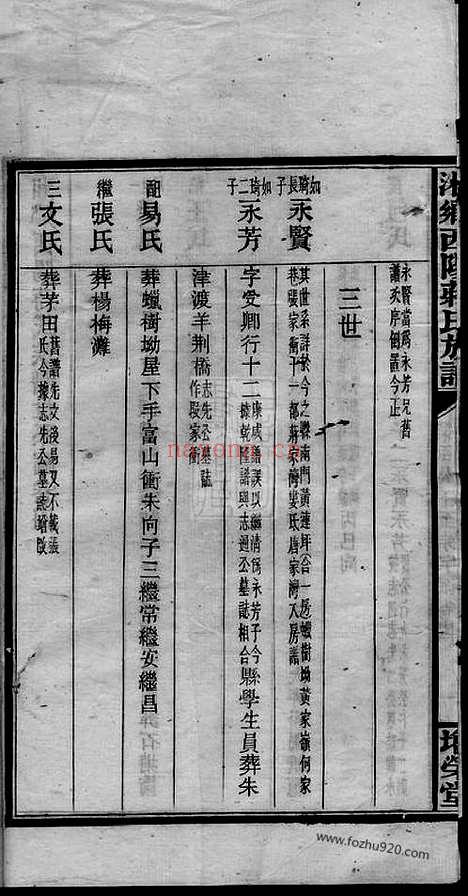 永賢當爲永芳兄舊
譜次序倒置今正
三世
如琦長子
永賢
其世系詳於今之縣南門黃蓮坪合一房蠟樹坳黃家嶺何家
巷張家衝十一都蔣家灣婁氏唐家灣入房譜
如琦二子
永芳
字受卿行十二
康成譜誤以繼清爲永芳子今
據乾隆譜與志過公墓誌相合
縣學生員葬朱
津渡羊荆橋
志先公墓誌
作段家衝
配易氏
葬蠟樹坳屋下手富山衝朱向子三繼常繼安繼昌
繼張氏
葬楊梅灘
三文氏
葬茅田
舊譜先文後易又不載張
氏今據志先公墓誌
培榮堂
nayona.cn
www.fozhu920.com